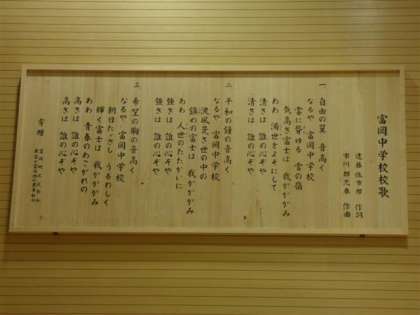 富岡中学校校歌
作詞
作曲
一 自由の翼 音高く
なるや 富岡中学校
雲に聳ゆる 雪の嶺
気高き富士は 我がかがみ
ああ 濁世をよそにして
清さは 誰の心ぞや
清さは 誰の心ぞや
二 平和の鐘の音高く
なるや 富岡中学校
波風荒き世の中の
鎮めの富士は 我がかがみ
ああ 人の世のたたかいに
強さは 誰の心ぞや
強さは 誰の心ぞや
三 希望の鞠の音高く
なるや 富岡中学校
朝日たださし うるわしく
輝く富士は 我がかがみ
ああ 青春のあこがれの
高さは 誰の心ぞや
高さは 誰の心ぞや
寄贈